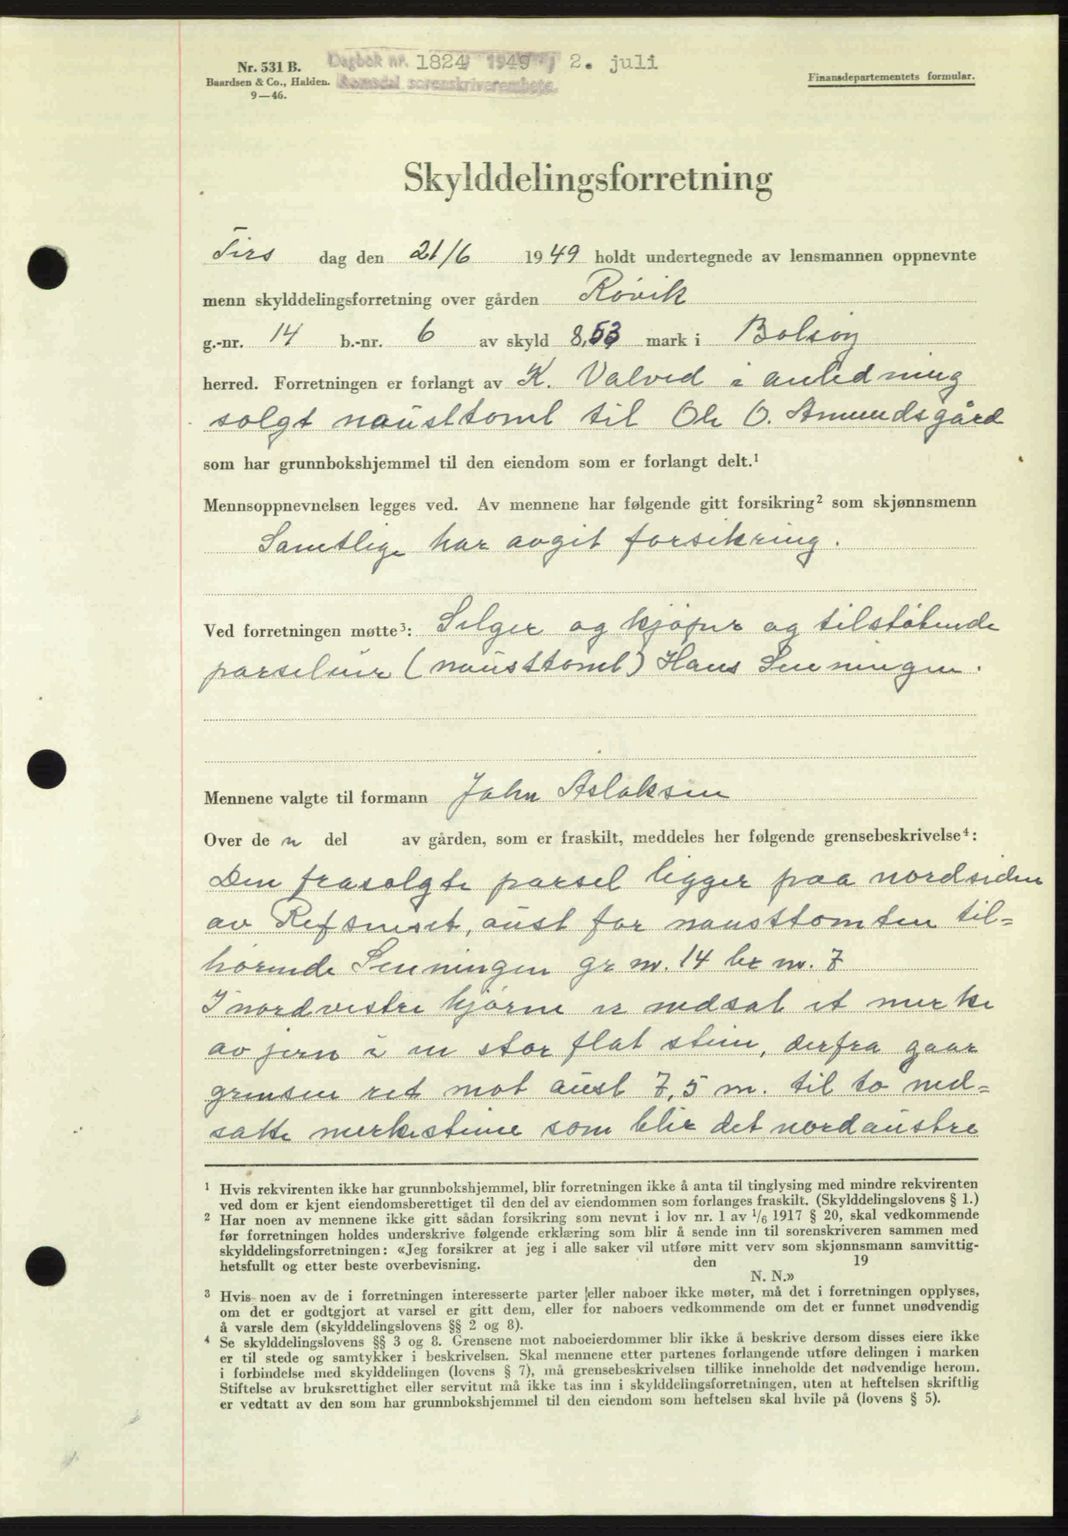 Nr. 531 B.
Baardsen & Co., Halden.
9—46.
Dagbok nr. 1824 1949 2. juli
Romsdal sorenskriverembete.
Finansdepartementets formular.
Skylddelingsforretning
Tirs dag den 21/6 1949 holdt undertegnede av lensmannen oppnevnte
menn skylddelingsforretning over gården Røvik
g.-nr. 14 b.-nr. 6 av skyld 8,53 mark i Bolsøy
herred. Forretningen er forlangt av K. Valved i anledning
solgt nausttomt til Ole O. Amundsgård
som har grunnbokshjemmel til den eiendom som er forlangt delt.¹
Mennsoppnevnelsen legges ved. Av mennene har følgende gitt forsikring² som skjønnsmenn
Samtlige har avgit forsikring.
Ved forretningen møtte³: Selger og kjøper og tilstøtende
parseleier (nausttomt) Hans Senningen.
Mennene valgte til formann John Aslaksen
Over de n del av gården, som er fraskilt, meddeles her følgende grensebeskrivelse⁴:
Den frasolgte parsel ligger paa nordsiden
av Refsneset, aust for nausttomten til=
hørende Senningen gr nr. 14 br nr. 7
I nordvestre hjørne er nedsat et merke
av jern i en stor flat stein, derfra gaar
grensen ret mot aust 7,5 m. til to ned=
satte merkesteine som blir det nordaustre
¹ Hvis rekvirenten ikke har grunnbokshjemmel, blir forretningen ikke å anta til tinglysing med mindre rekvirenten
ved dom er kjent eiendomsberettiget til den del av eiendommen som forlanges fraskilt. (Skylddelingslovens § 1.)
² Har noen av mennene ikke gitt sådan forsikring som nevnt i lov nr. 1 av ¹/₆ 1917 § 20, skal vedkommende
før forretningen holdes underskrive følgende erklæring som blir å sende inn til sorenskriveren sammen med
skylddelingsforretningen: «Jeg forsikrer at jeg i alle saker vil utføre mitt verv som skjønnsmann samvittig-
hetsfullt og etter beste overbevisning. den 19
N. N.»
³ Hvis noen av de i forretningen interesserte parter eller naboer ikke møter, må det i forretningen opplyses,
om det er godtgjort at varsel er gitt dem, eller for naboers vedkommende om det er funnet unødvendig
å varsle dem (skylddelingslovens §§ 2 og 8).
⁴ Se skylddelingslovens §§ 3 og 8. Grensene mot naboeierdommer blir ikke å beskrive dersom disses eiere ikke
er til stede og samtykker i beskrivelsen. Skal mennene etter partenes forlangende utføre delingen i marken
i forbindelse med skylddelingen (lovens § 7), må grensebeskrivelsen tillike inneholde det nødvendige herom.
Stiftelse av bruksrettighet eller servitut må ikke tas inn i skylddelingsforretningen, uten at heftelsen skriftlig
er vedtatt av den som har grunnbokshjemmel til den eiendom som heftelsen skal hvile på (lovens § 5).